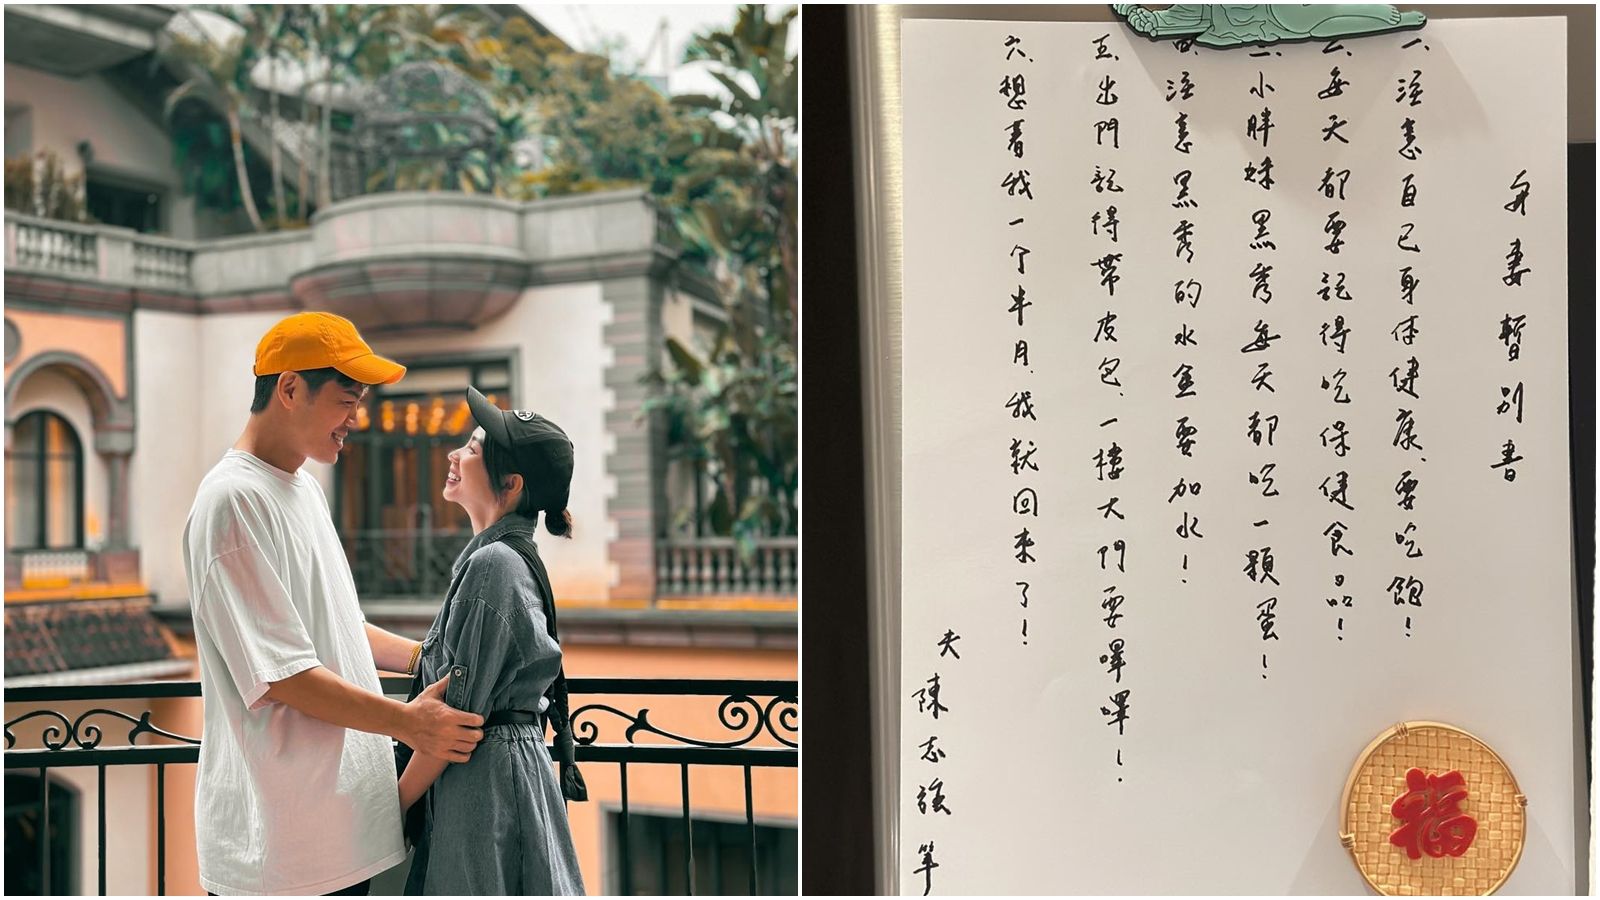 与妻暫別書
一、注意自己身体健康、要吃飽！
二、每天都要記得吃保健食品！
三、小胖妹黑秀每天都吃一顆蛋！
四、注意黑秀的水要加水！
五、出門記得帶皮包、一樓大門要嗶嗶！
六、想着我一个半月、我就回來了！
夫 陳志強 筆
福